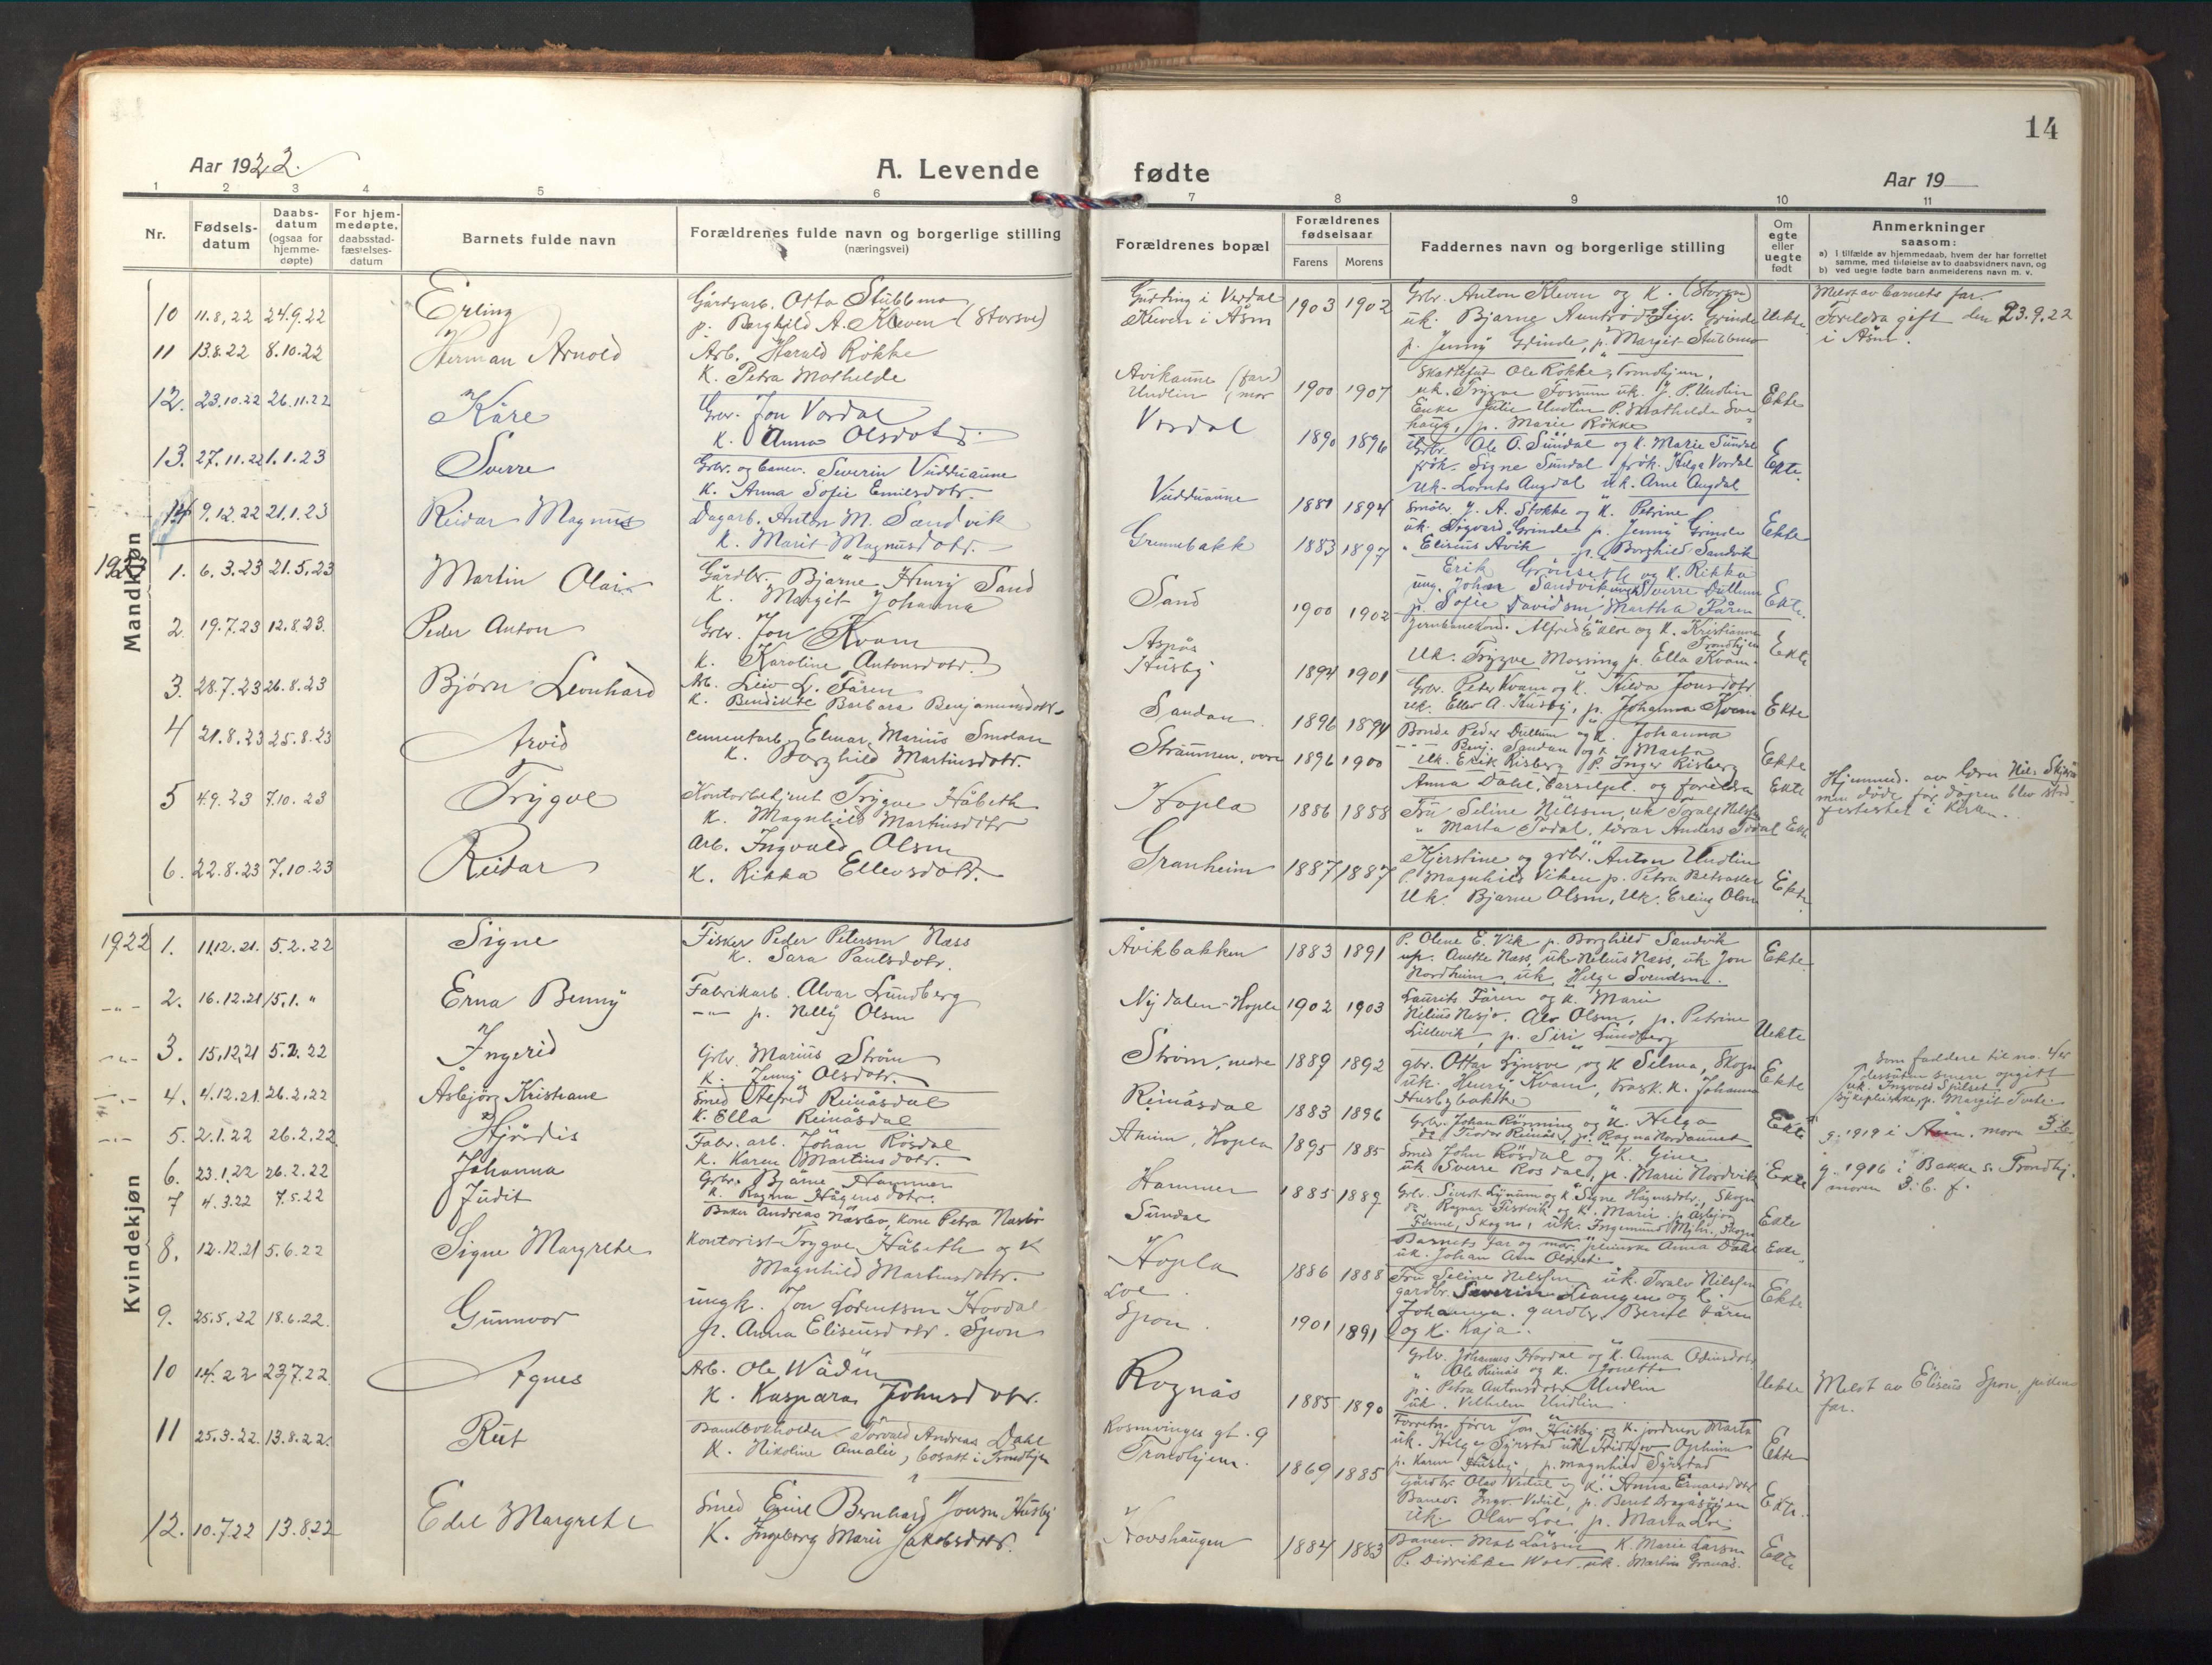 14
Aar 1922.
A. Levende fødte
Aar 19
1 2 3 4 5 6 7 8 9 10 11
Nr.
Fødsels-
datum
Daabs-
datum
(ogsaa for
hjemme-
døpte)
For hjem-
medøpte,
daabsstad-
fæstelses-
datum
Barnets fulde navn
Forældrenes fulde navn og borgerlige stilling
(næringsvei)
Forældrenes bopæl
Forældrenes
fødselsaar
Farens Morens
Faddernes navn og borgerlige stilling
Om
egte
eller
uegte
født
Anmerkninger
saasom:
a) i tilfælde av hjemmedaab, hvem der har forrettet
samme, med tilføielse av to daabsvidners navn, og
b) ved uegte fødte barn anmelderens navn m. v.
Mandkjøn
10 11.8.22 24.9.22 Erling
Gårdsarb. Otto Stubbmo
p. Borghild A. Kleven (Storsve)
Kleven i Åsen
1903 1902
Grbr. Anton Kleven og K.
p. Jenny Grinde, p. Margit Stubbmo
Uekte
Meldt av barnets far.
Foreldra gift den 23.9.22
i Åsen.
11 13.8.22 8.10.22 Herman Arnold
Arb. Harald Røkke
K. Petra Mathilde
Avikaune (far)
Undlin (mor
1900 1907
Ole Røkke, Trondhjem,
uk. Trygve Fossum uk. J. P. Undlin
Enke Julie Undlin P. Mathilde Sve
haug, p. Marie Røkke
Ekte
12. 23.10.22 26.11.22 Kåre
Grbr. Jon Vordal
K. Anna Olsdotr.
Vordal
1890 1896
Grbr. Ole O. Sundal og K. Marie Sundal
frøk. Signe Sundal frøk. Helga Vordal
uk. Lornts Augdal uk. Arne Augdal
Ekte.
13. 27.11.22 1.1.23 Sverre
Grbr. og banev. Severin Vudduaune
K. Anna Sofie Emilsdotr.
Vudduaune
1881 1894
Småbr. J. A. Stokke og K. Petrine
uk. Sigvard Grinde p. Jenny Grinde
" Eliseus Avik p. Borghild Sandvik
Ekte
14 9.12.22 21.1.23 Reidar Magnus
Dagarb. Anton M. Sandvik
K. Marit Magnusdotr.
Grennebakk
1883 1897
Erik Grønseth og K. Rikka
ung. Johan Sandvik Sverre Dullum
p. Sofie Davidsen, Martha Fåren
Ekte.
1923
1. 6.3.23 21.5.23 Martin Olair
Gårdbr. Bjarne Henry Sand
K. Margit Johanna
Sand
1900 1902
Alfred og K. Kristianne
Trondhjem
Uk. Trygve Mossing p. Ella Kvam
Ekte
2. 19.7.23 12.8.23. Peder Anton
Grbr. Jon Kvam
K. Karoline Antonsdotr.
Aspås
Husby
1894 1901
Grbr. Peter Kvam og K. Hilda Jonsdotr.
uk. Ellev A. Husby, p. Johanna Kvam
Ekte
3. 28.7.23 26.8.23 Bjørn Leonhard
Arb. Leiv L. Fåren
K. Bendikte Barbara Benjaminsdotr.
Sandan.
1896 1894
Bonde Peder Dullum og K. Johanna
Benj. Sandan og K. Marta
uk. Erik Risberg P. Inger Risberg
Ekte
4 21.8.23 25.8.23 Arvid
cementarb. Elmar Marius Smolan
K. Borghild Martinsdotr.
Straummen, øvre
1896 1900
Anna Dahl, barselpl. og foreldra
Ekte
men døde før dåpen blev stad-
festet i kirken.
5 4.9.23 7.10.23 Trygve
Kontorbetjent Trygve Håbeth
K. Magnhild Martinsdotr
Hopla
1886 1888
Fru Seline Nilssen, uk Toralf Nilssen
" Marta Todal, lærar Anders Todal
Ekte
6. 22.8.23 7.10.23 Reidar
Arb. Ingvald Olsen
K. Rikka Ellevsdotr.
Granheim
1887 1887
Kjerstine og grbr. Anton Undlin
p. Magnhild Viken p. Petra Betsaker
Uk. Bjarne Olsen, Uk. Erling Olsen
Ekte.
Kvindekjøn
1922
1. 11.12.21. 5.2.22 Signe
Fisker Peder Petersen Næss
K. Sara Paulsdotr.
Åvikbakken
1883 1891
P. Olene E. Vik p. Borghild Sandvik
up. Anette Næss, uk Nelius Næss, uk Jon
Nordheim, uk Helge Svendsen.
Ekte
2. 16.12.21 15.1. " Erna Benny
Fabrikarb. Alvar Lundberg
p. Nelly Olsen
Nydalen-Hopla
1902 1903
Laurits Fåren og K. Marie
Nelius Nesjø. Alv Olsen, p. Petrine
Lillevik, p. Siri Lundberg
Uekte
3. 15.12.21 5.2.22 Ingerid
Grbr. Marius Strøm
K. Jenny Olsdotr.
Strøm, nedre
1889 1892
gbr. Ottar Lynsve og K Selma, Skogn
uk. Henry Kvam, K. Johanna
Husbybakke
Ekte
4. 4.12.21. 26.2.22 Åsbjørg Kristiane
Smed Alfred Reinåsdal
K. Ella Reinåsdal
Reinåsdal
1883 1896
Grbr. Johan Rønning og K. Helga
do Teodor Reinås, p. Ragna Nordaunet
Ekte
Som faddere til no. 4 er
dessuten senere opgitt
uk. Ingvald Spilset
sykepleierske, p. Margit Tvete.
5. 2.1.22 26.2.22. Hjørdis
Fabr. arb. Johan Rosdal
K. Karen Martinsdotr.
Hopla
1895 1885
Smed John Rosdal og K. Gine
uk Sverre Rosdal, p. Marie Nordvik
Ekte
g. 1919 i Åsen. moren 3. b.
6. 23.1.22 26.2.22 Johanna
Grbr. Bjarne Hammer
K. Ragna Hågensdotr.
Hammer
1885 1889
Grbr. Sivert Lynum og K Signe Hågensdotr., Skogn
do Ragnar Fiskvik og K. Marie. p. Åsbjørg
Fenne, Skogn, uk. Ingemund Myhr, Skogn
Ekte
g. 1916 i Bakke s. Trondhj.
moren 3. b. f.
7 4.3.22 7.5.22 Judit
Baker Andreas Næsbø, kone Petra Næsbø
Sundal
Barnets far og mor. pleierske Anna Dahl
uk. Johan Arn Olsen
Ekte
8. 12.12.21 5.6.22 Signe Margrethe
Kontorist Trygve Håbeth og K
Magnhild Martinsdotr.
Hopla
1886 1888
Fru Seline Nilssen, uk. Toralv Nilssen
gardbr. Severin Leangen og K.
Johanna. gardbr. Bernt Fåren
og K. Kaja.
Ekte
9. 25.5.22 18.6.22. Gunnvor
ungk. Jon Lorentsen Hovdal
p. Anna Eliseusdotr. Spon
Loe.
Spon.
1901 1891
Grbr. Johannes Hovdal og K. Anna Odinsdotr
" Ole Reinås og K. Jonetta
p. Petra Antonsdotr. Undlin
uk. Vilhelm Undlin
Uekte
Meldt av Eliseus Spon, pikens
far.
10 1.4.22 23.7.22. Agnes
Arb. Ole Wådin
K. Kaspara Johnsdotr.
Rognås
1885 1890
Forretn. fører Jon Husby og K. jordmor Marta
uk. Helge Tyrstad uk. Fridtjov Opheim
p. Karen Husby, p. Magnhild Tyrstad
Ekte
11 25.3.22. 13.8.22. Rut
Torvald Andreas Dahl
K. Nikoline Amalie, bosatt i Trondhjem
Rosenvinges gt. 9
Trondhjem.
1869 1885
Gårdbr. Olav Vedul og K. Anna Einarsdotr
Banev. Inge Vedul, p. Berit
uk. Olav Loe, p. Marta Loe
Ekte.
12. 10.7.22 13.8.22 Edel Margrethe
Smed Emil Bernhard Jonsen Husby
K. Ingeborg Marie Jakobsdotr.
Hovshaugen
1884 1883
Banev. Mat Larsen K. Marie Larsen
P. Didrikke Wold, uk. Martin Granås.
Ekte